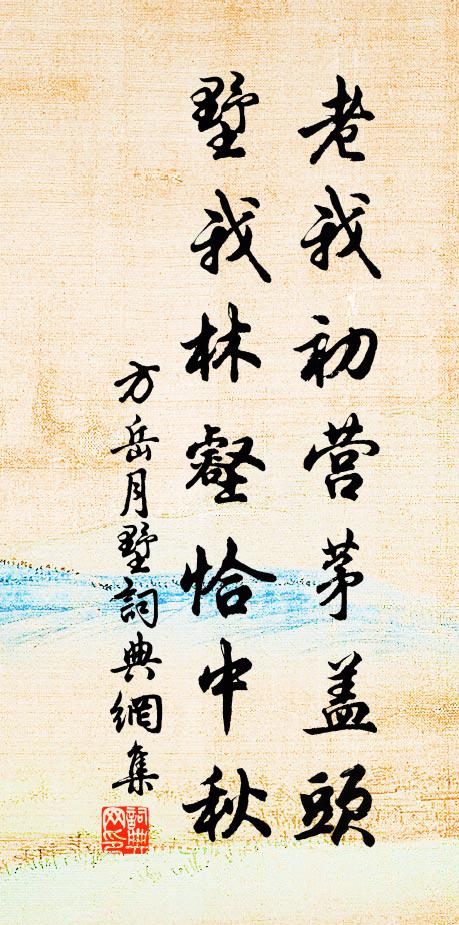 老我初营茅盖頭
墅我林壑恰中秋
方岳月墅詞典網集
詞典网印